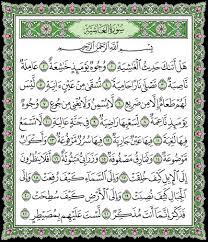 سُورَةُ الْغَاشِيَةِ
بِسْمِ اللَّهِ الرَّحْمَٰنِ الرَّحِيمِ
هَلْ أَتَىٰكَ حَدِيثُ الْغَٰشِيَةِ ١ وُجُوهٌ يَوْمَئِذٍ خَٰشِعَةٌ ٢ عَامِلَةٌ
نَّاصِبَةٌ ٣ تَصْلَىٰ نَارًا حَامِيَةً ٤ تُسْقَىٰ مِنْ عَيْنٍ ءَانِيَةٍ ٥ لَّيْسَ
لَهُمْ طَعَامٌ إِلَّا مِن ضَرِيعٍ ٦ لَّا يُسْمِنُ وَلَا يُغْنِى مِن جُوعٍ ٧ وُجُوهٌ
يَوْمَئِذٍ نَّاعِمَةٌ ٨ لِّسَعْيِهَا رَاضِيَةٌ ٩ فِى جَنَّةٍ عَالِيَةٍ ١٠ لَّا تَسْمَعُ
فِيهَا لَٰغِيَةً ١١ فِيهَا عَيْنٌ جَارِيَةٌ ١٢ فِيهَا سُرُرٌ مَّرْفُوعَةٌ ١٣ وَأَكْوَابٌ
مَّوْضُوعَةٌ ١٤ وَنَمَارِقُ مَصْفُوفَةٌ ١٥ وَزَرَابِىُّ مَبْثُوثَةٌ ١٦ أَفَلَا يَنظُرُونَ
إِلَى الْإِبِلِ كَيْفَ خُلِقَتْ ١٧ وَإِلَى السَّمَآءِ كَيْفَ رُفِعَتْ ١٨ وَإِلَى
الْجِبَالِ كَيْفَ نُصِبَتْ ١٩ وَإِلَى الْأَرْضِ كَيْفَ سُطِحَتْ ٢٠
فَذَكِّرْ إِنَّمَآ أَنتَ مُذَكِّرٌ ٢١ لَّسْتَ عَلَيْهِم بِمُصَيْطِرٍ ٢٢